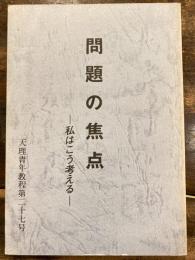 問題の焦点
―私はこう考える―
天理青年教程第二十七号